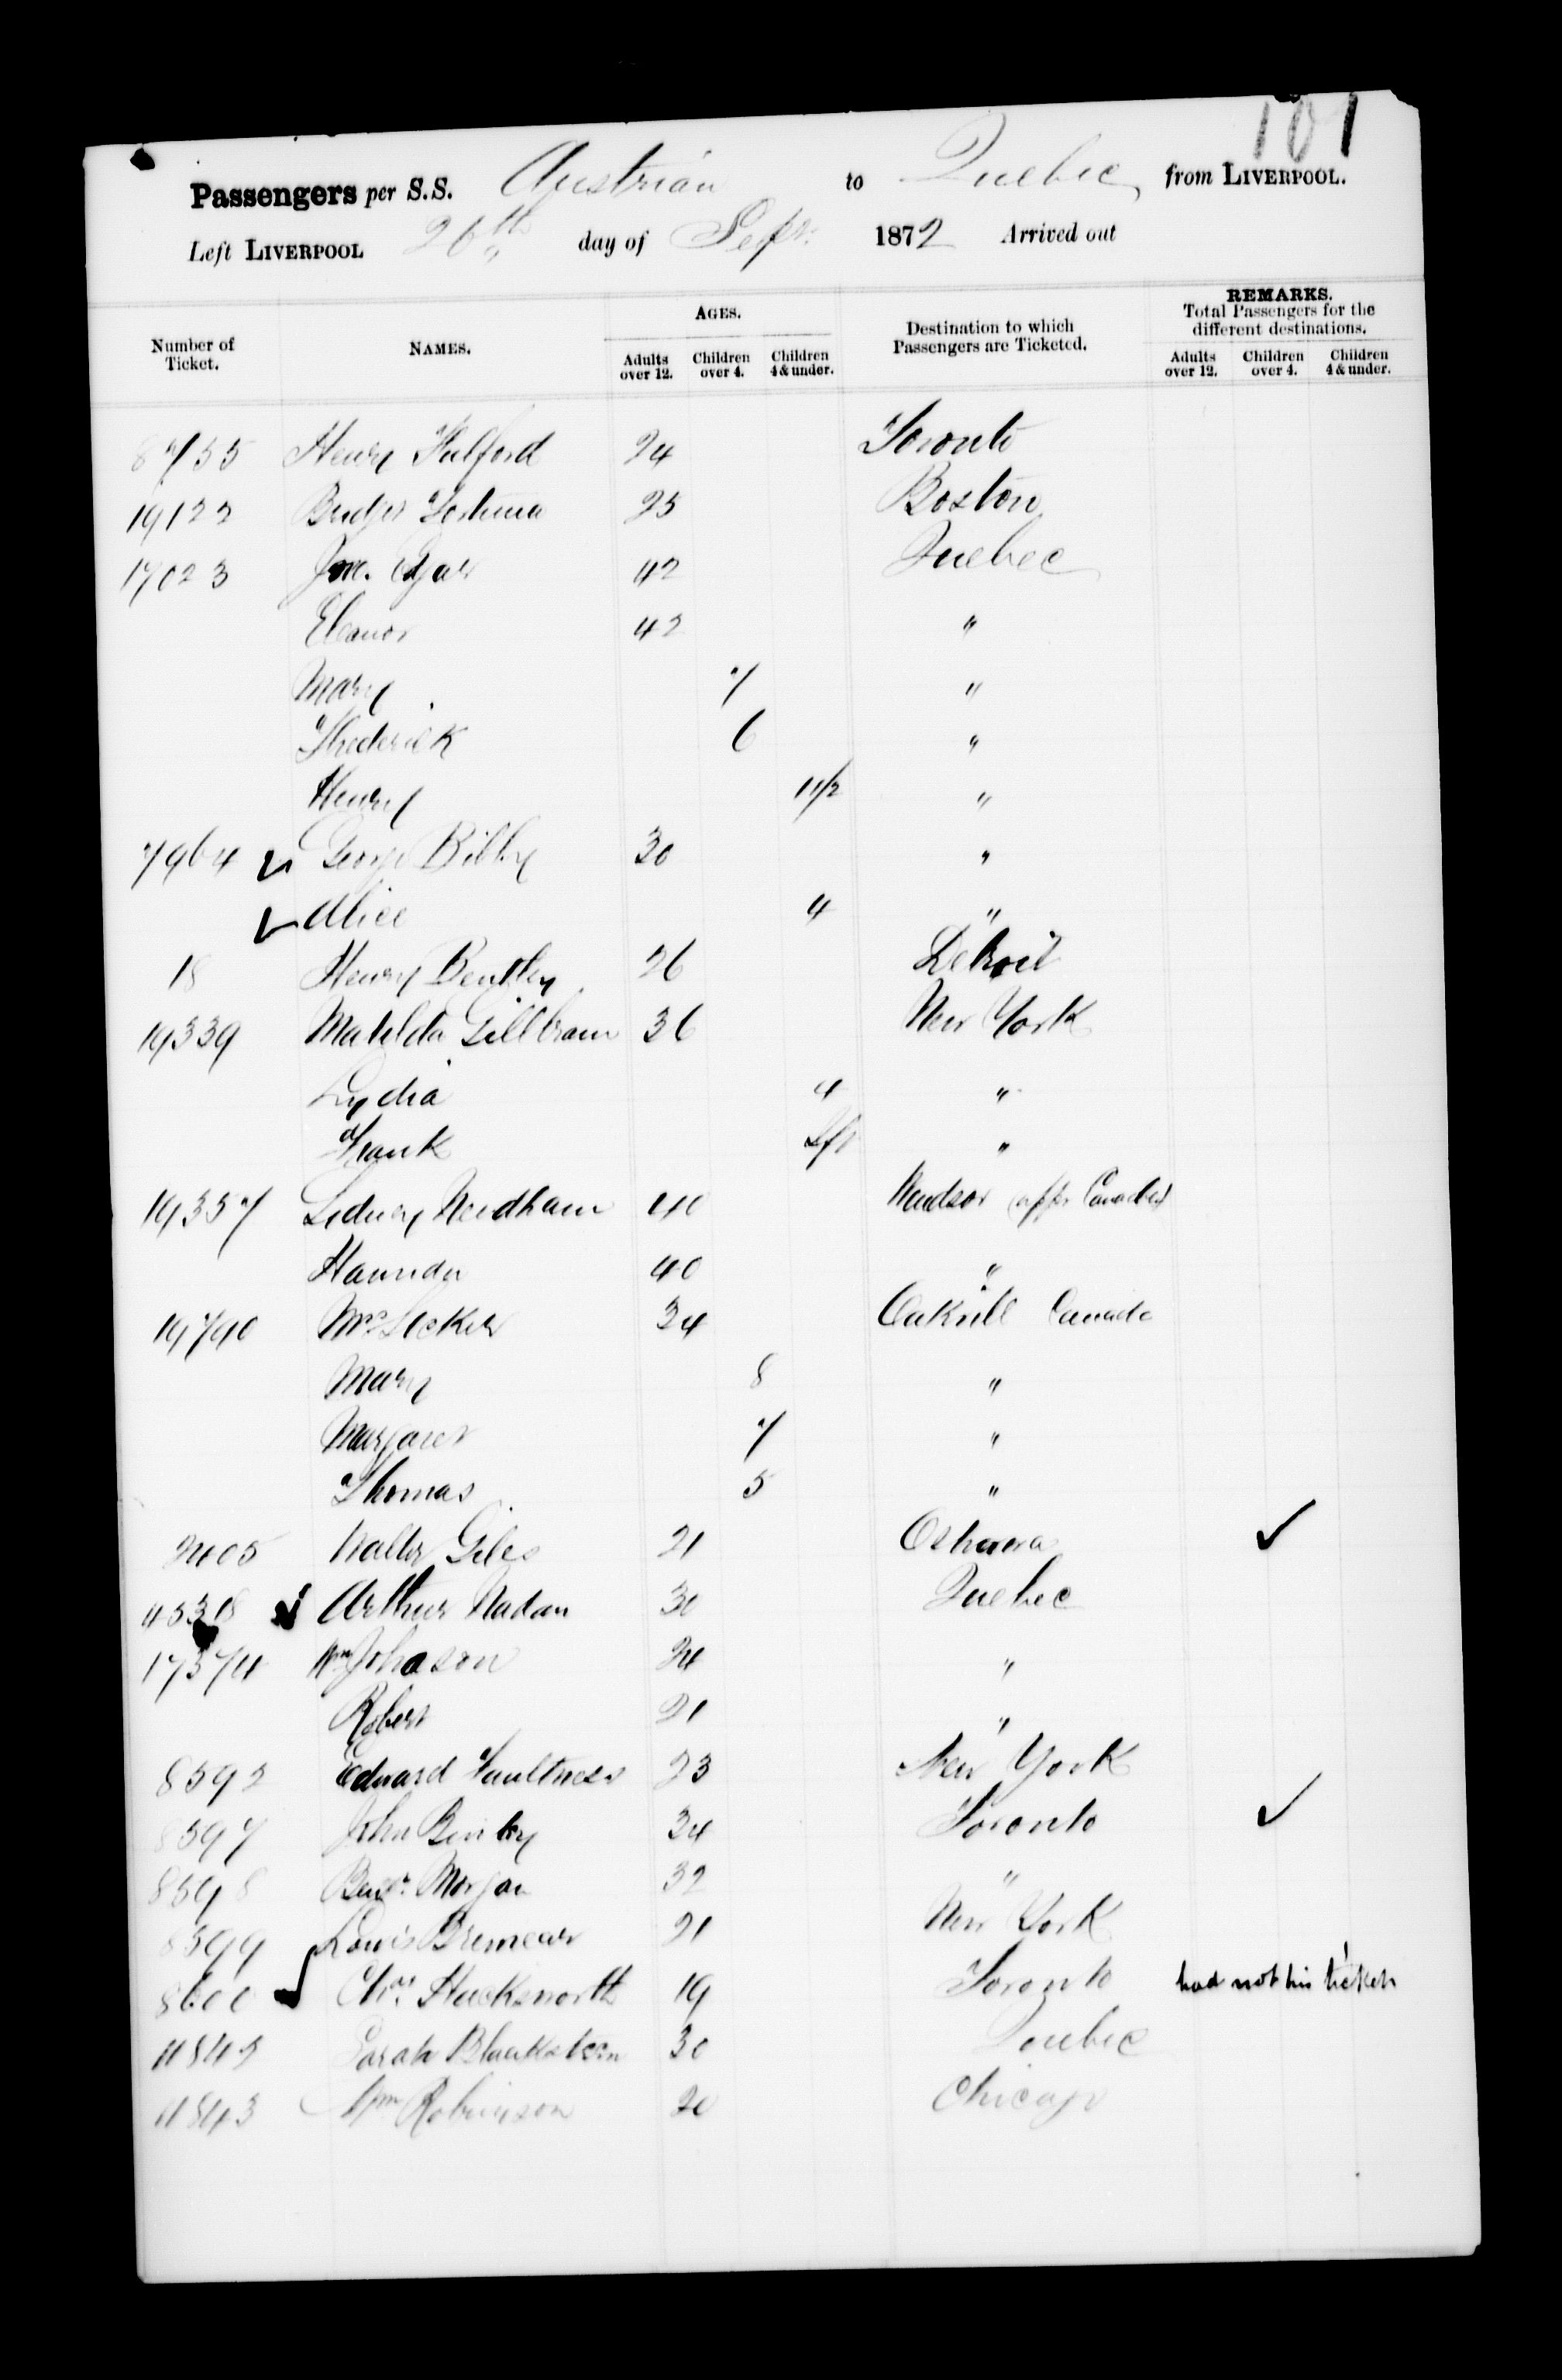 101
Passengers per S.S. Austrian to Quebec from LIVERPOOL.
Left LIVERPOOL 26th day of Sepr. 1872 Arrived out
Number of Ticket. NAMES. AGES. Destination to which Passengers are Ticketed. REMARKS. Total Passengers for the different destinations.
Adults over 12. Children over 4. Children 4 & under. Adults over 12. Children over 4. Children 4 & under.
8755 Henry Fulford 24 Toronto
19122 25 Boston
17023 42 Quebec
Eleanor 42 "
Mary 7 "
Frederick 6 "
Henry 1 1/2 "
7964 George Bilby 30 "
Alice 4 "
18 Henry Bentley 26 Detroit
19339 Matilda 36 New York
Lydia 4 "
Frank "
19357 Sidney Needham 40 Windsor
Hannah 40 "
19790 Mrs 34 Canada
Mary 8 "
Margaret 7 "
Thomas 5 "
2405 Walter Giles 21 Oshawa
Arthur Nadan 30 Quebec
17374 Wm Johnson 24 "
Robert 21 "
8592 Edward 23 New York
8597 John 34 Toronto
8598 Morgan 32 "
8599 Louis 21 New York
8600 Chas. 19 Toronto had not his ticket
11842 Sarah 30 Quebec
11843 Wm Robinson 20 Chicago